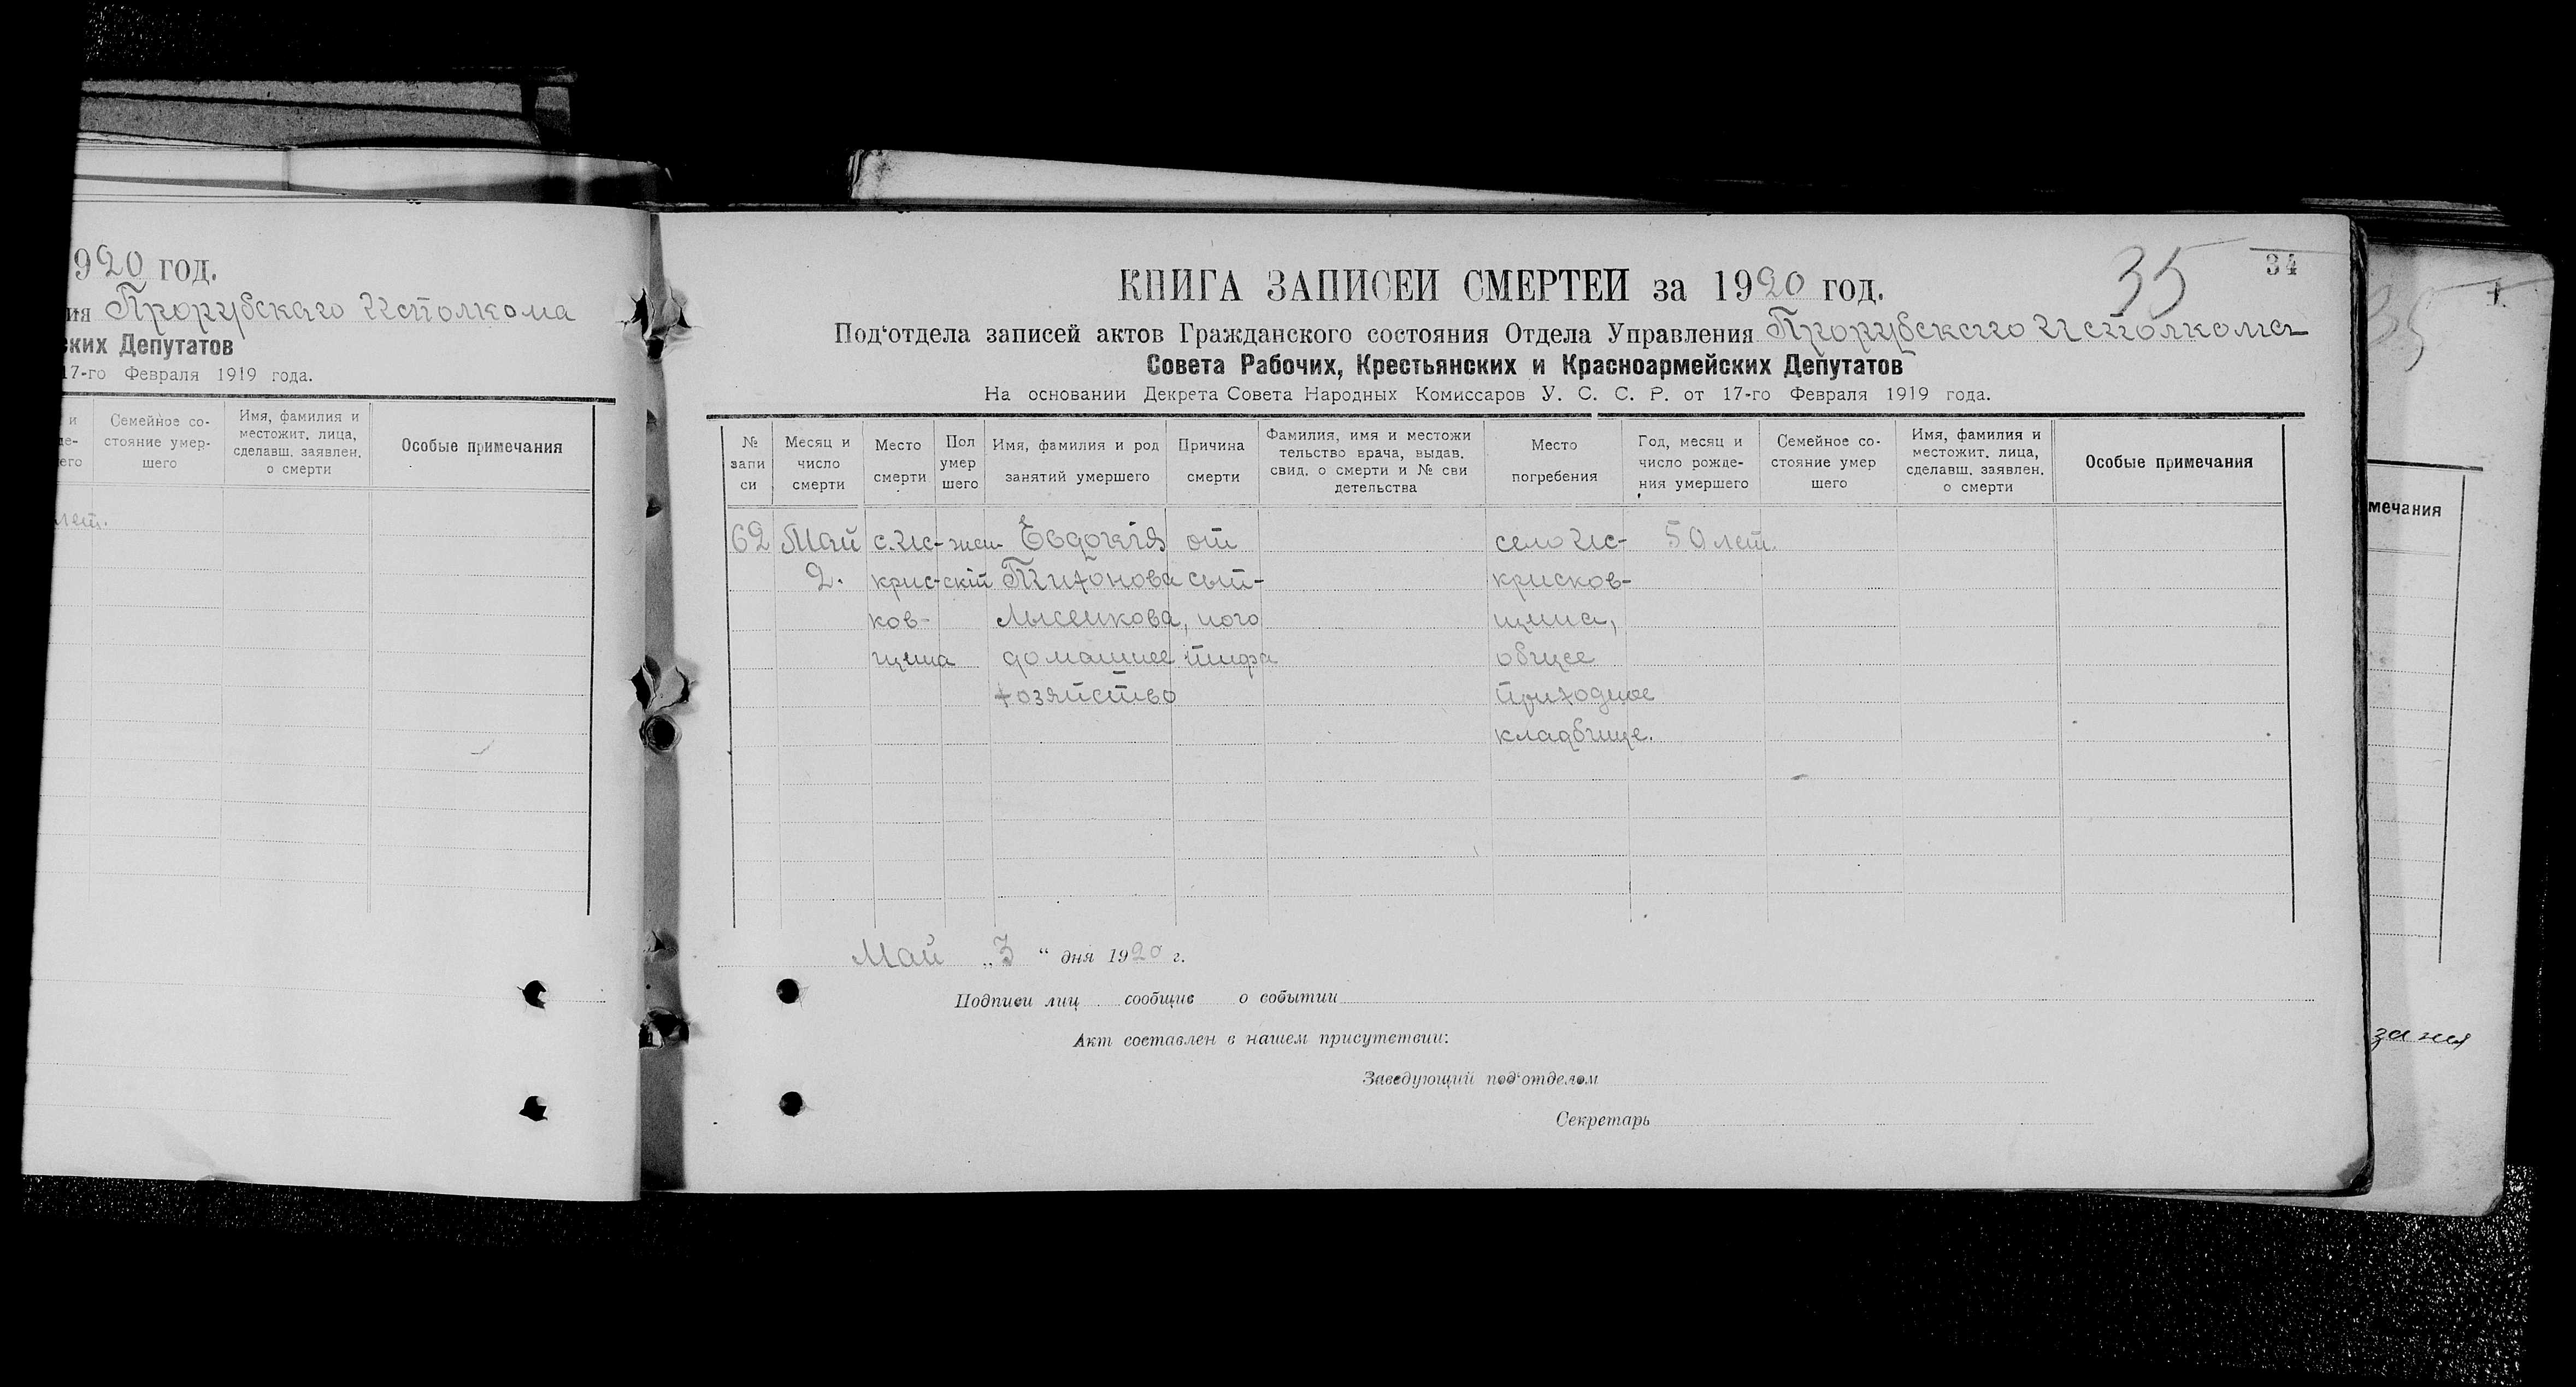 920 год.
ия Прорубскаго Исполкома
ских Депутатов
17-го Февраля 1919 года.
и
де-
его
Семейное со-
стояние умер-
шего
Имя, фамилия и
местожит. лица,
сделавш. заявлен.
о смерти
Особые примечания
лет.
35
34
КНИГА ЗАПИСЕЙ СМЕРТЕЙ за 1920 год.
Под'отдела записей актов Гражданского состояния Отдела Управления Прорубскаго Исполкома
Совета Рабочих, Крестьянских и Красноармейских Депутатов
На основании Декрета Совета Народных Комиссаров У. С. С. Р. от 17-го Февраля 1919 года.
№
запи
си
Месяц и
число
смерти
Место
смерти
Пол
умер
шего
Имя, фамилия и род
занятий умершего
Причина
смерти
Фамилия, имя и местожи
тельство врача, выдав.
свид. о смерти и № сви
детельства
Место
погребения
Год, месяц и
число рожде-
ния умершего
Семейное со-
стояние умер
шего
Имя, фамилия и
местожит. лица,
сделавш. заявлен.
о смерти
Особые примечания
62 Май с. Ис- жен- Евдокія от село Ис- 50 лет.
2. крис- скій Тихонова сып- крисков-
ков- Лысенкова, ного щина,
щина домашнее тифа общее
хозяйство приходное
кладбище.
Май „3“ дня 1920 г.
Подписи лиц сообщив о событии
Акт составлен в нашем присутствии:
Заведующий под'отделом
Секретарь
35
мечания
зания